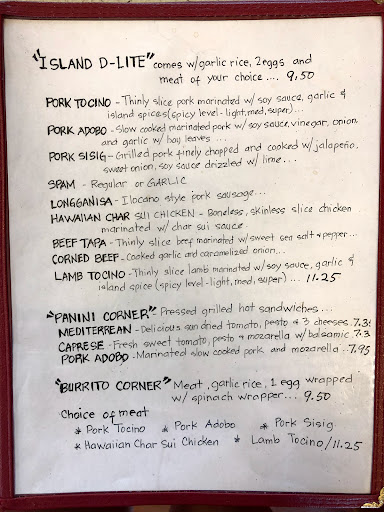 "ISLAND D-LITE" comes w/garlic rice, 2eggs and
meat of your choice .... 9.50
PORK TOCINO - Thinly slice pork marinated w/ soy sauce, garlic &
island spices (spicy level-light, med, super)...
PORK ADOBO - Slow cooked marinated pork w/ soy sauce, vinegar, onion
and garlic w/ bay leaves ....
PORK SISIG - Grilled pork finely chopped and cooked w/ jalapeño,
sweet onion, soy sauce drizzled w/ lime ...
SPAM - Regular or GARLIC
LONGGANISA - Ilocano style pork sausage...
HAWAIIAN CHAR SUI CHICKEN - Boneless, skinless slice chicken
marinated w/ char sui sauce
BEEF TAPA - Thinly slice beef marinated w/ sweet sea salt & pepper...
CORNED BEEF - Cooked garlic and caramelized onion...
LAMB TOCINO - Thinly slice lamb marinated w/ soy sauce, garlic &
island spice (spicy level-light, med, super) ... 11.25
"PANINI CORNER" Pressed grilled hot sandwiches...
MEDITERREAN - Delicious sun dried tomato, pesto & 3 cheeses
CAPRESE - Fresh sweet tomato, pesto & mozarella w/ balsamic
PORK ADOBO - Marinated slow cooked pork and mozarella .. 7.95
"BURRITO CORNER" Meat, garlic rice, 1 egg wrapped
w/ spinach wrapper... 9.50
Choice of meat
* Pork Tocino * Pork Adobo * Pork Sisig
* Hawaiian Char Sui Chicken * Lamb Tocino/11.25